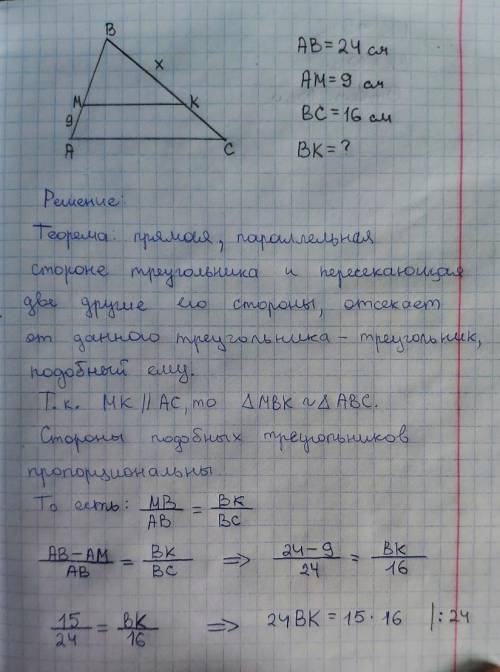 B
x
M
K
9
A
C
AB = 24 см
AM = 9 см
BC = 16 см
BK = ?
Решение:
Теорема: прямая, параллельная
стороне треугольника и пересекающая
две другие его стороны, отсекает
от данного треугольника - треугольник,
подобный ему.
Т.к. MK || AC, то △MBK ~ △ABC.
Стороны подобных треугольников
пропорциональны
То есть: MB/AB = BK/BC
AB-AM/AB = BK/BC ⇒ 24-9/24 = BK/16
15/24 = BK/16 ⇒ 24BK = 15·16 |:24